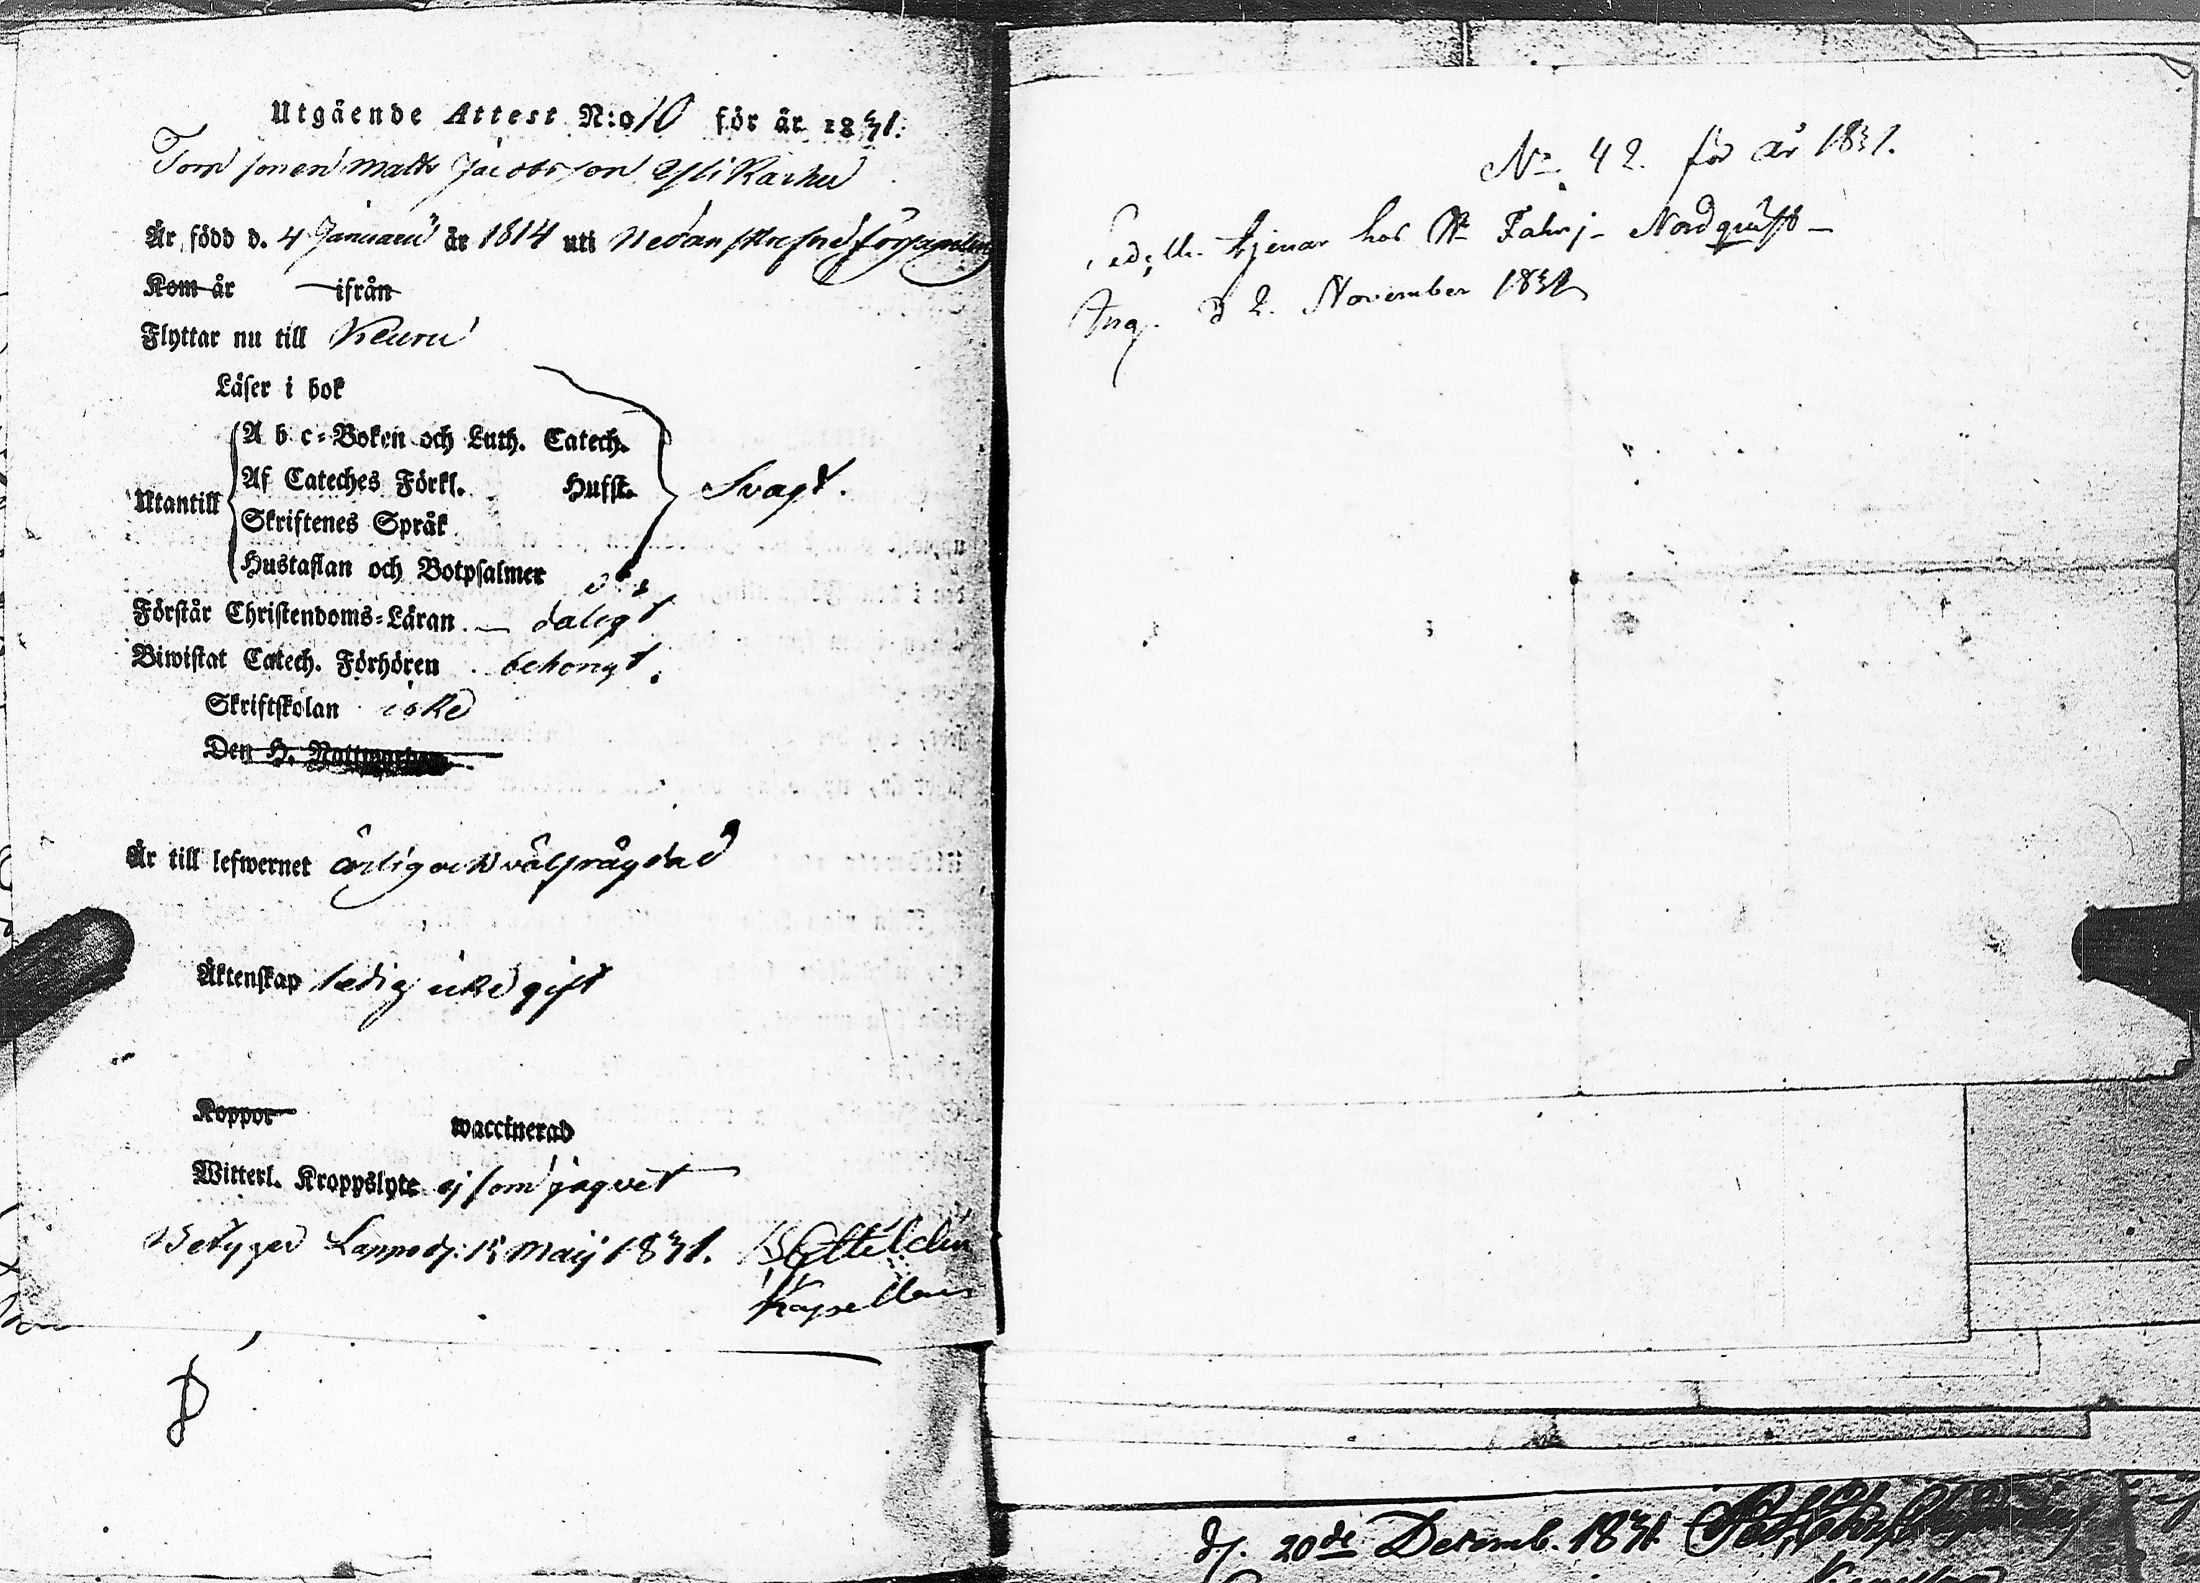 Utgående Attest N:o 10 för år 1831.
Torp sonen Matts Jacobsson Yli Karhu
Är född d. 4 Januarii år 1814 uti Nedanskrefne församling
Kom år ifrån
Flyttar nu till Keuru
Läser i bok
A b c-Boken och Luth. Catech.
Af Cateches Förkl. Hufst. Svagt.
Utantill
Skriftenes Språk
Hustaflan och Botpsalmer
Förstår Christendoms-Läran daligt
Biwistat Catech. Förhören behörigt.
Skriftskolan icke
Den H. Nattwarden
Är till lefwernet ärlig och välfrägdad
Äktenskap ledig icke gift
Koppor waccinerad
Witterl. Kroppslyte ej som jag vet
Betygar Lappo d. 15 Maij 1831.
Kapellan
No. 42. för år 1831.
tjenar hos Nordqvist
Ing. d 2. November 1831
d. 20de Decemb. 1831